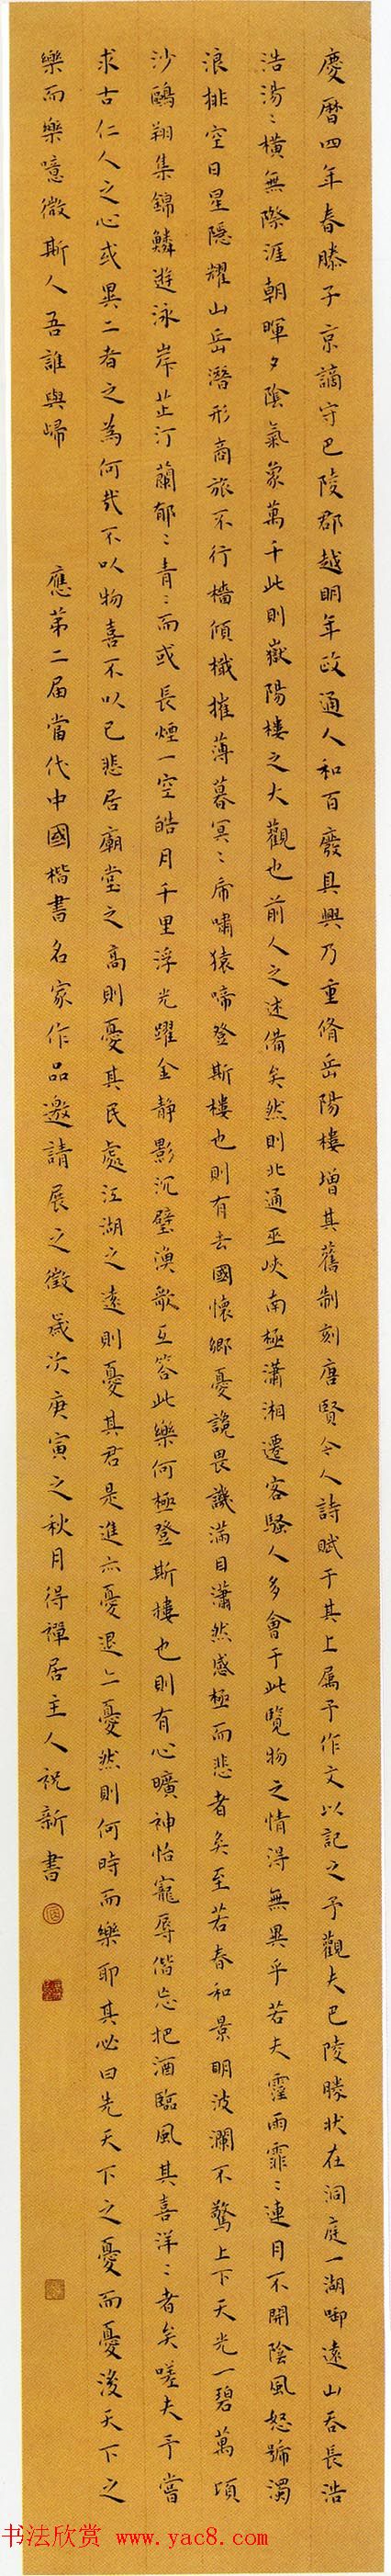 慶曆四年春滕子京謫守巴陵郡越明年政通人和百廢具興乃重脩岳陽樓增其舊制刻唐賢今人詩賦于其上属予作文以記之予觀夫巴陵勝狀在洞庭一湖啣遠山吞長浩
浩湯〻橫無際涯朝暉夕陰氣象萬千此則嶽陽樓之大觀也前人之述備矣然則北通巫峽南極瀟湘遷客騷人多會于此覽物之情得無異乎若夫霪雨霏〻連月不開陰風怒號濁
浪排空日星隱耀山岳潛形商旅不行檣傾檝摧薄暮冥〻虎嘯猿啼登斯樓也則有去國懷鄉憂詭畏譏滿目瀟然感極而悲者矣至若春和景明波瀾不驚上下天光一碧萬頃
沙鷗翔集錦鱗遊泳岸芷汀蘭郁〻青〻而或長煙一空皓月千里浮光躍金静影沉璧漁歌互答此樂何極登斯樓也則有心曠神怡寵辱偕忘把酒臨風其喜洋〻者矣嗟夫予嘗
求古仁人之心或異二者之為何哉不以物喜不以己悲居廟堂之高則憂其民處江湖之遠則憂其君是進亦憂退亦憂然則何時而樂耶其必曰先天下之憂而憂後天下之
樂而樂噫微斯人吾誰與歸
應第二届當代中國楷書名家作品邀請展之徵歲次庚寅之秋月得禪居主人祝新書
书法欣赏 www.yac8.com